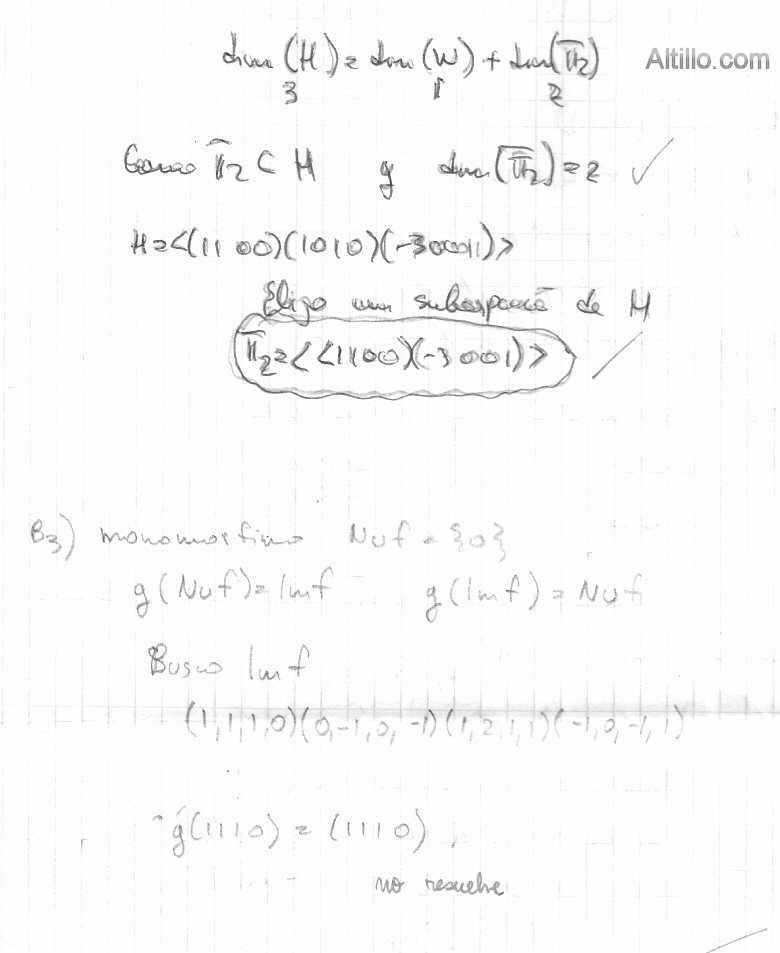 dim (H) = dim (W) + dim(Π2) Altillo.com
3 1 2
Como Π2 ⊂ H y dim(Π2) = 2 ✓
H=<(1100)(1010)(-3001)>
Elijo un subespacio de H
Π2=<(1100)(-3001)>
B3) monomorfismo Nuf = {0}
g(Nuf)= Imf g(Imf) = Nuf
Busco Imf
(1,1,1,0)(0,-1,0,-1)(1,2,1,1)(-1,0,-1,1)
g(1110) = (1110)
no resuelve